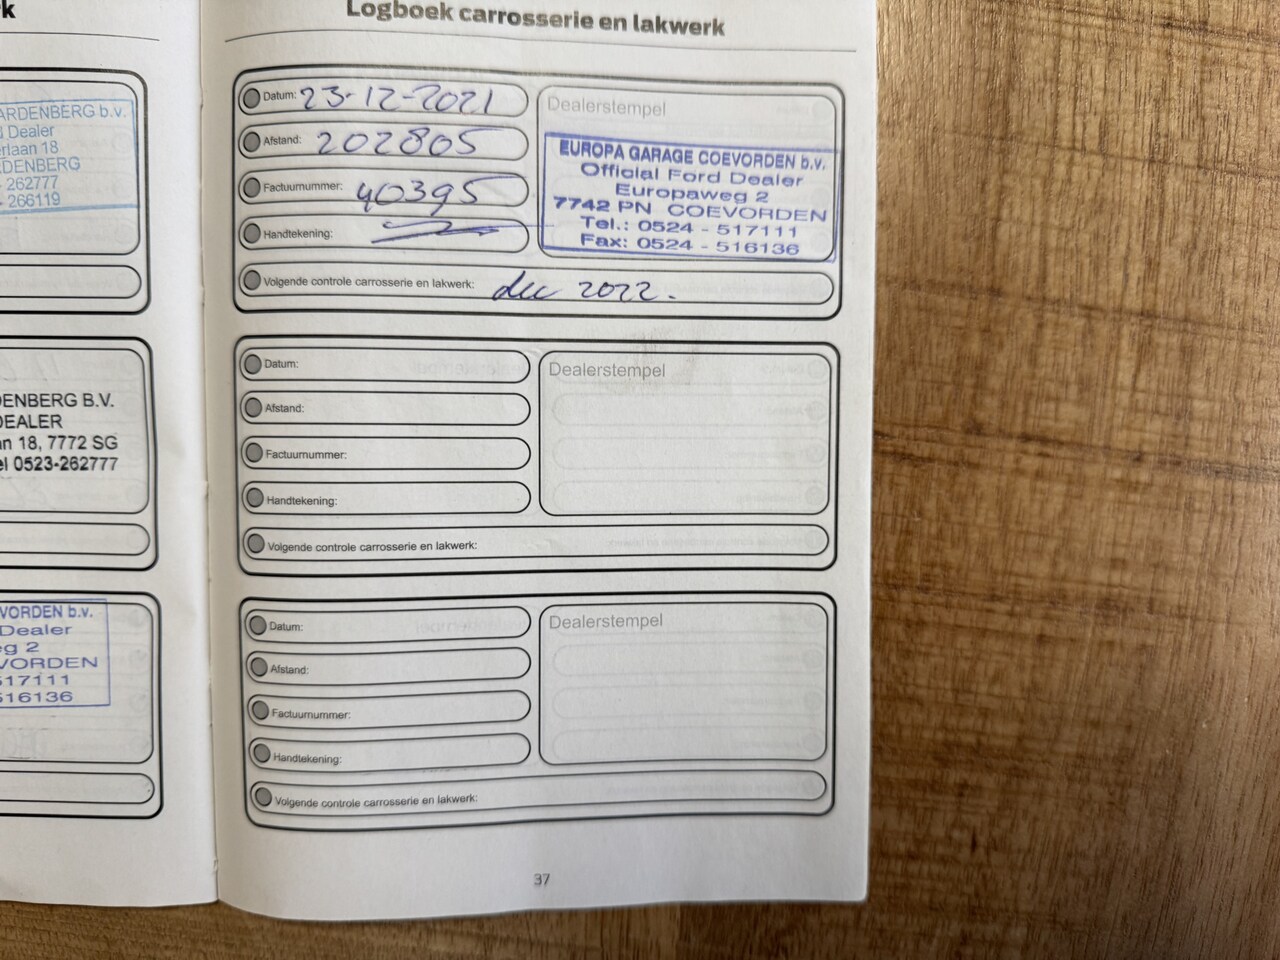 k
ARDENBERG b.v.
d Dealer
erlaan 18
RDENBERG
- 262777
- 266119
DENBERG B.V.
DEALER
an 18, 7772 SG
el 0523-262777
VORDEN b.v.
Dealer
eg 2
EVORDEN
517111
516136
Logboek carrosserie en lakwerk
Datum: 23-12-2021
Afstand: 202805
Factuurnummer: 40395
Handtekening:
Volgende controle carrosserie en lakwerk: dec 2022.
Dealerstempel
EUROPA GARAGE COEVORDEN b.v.
Official Ford Dealer
Europaweg 2
7742 PN COEVORDEN
Tel.: 0524 - 517111
Fax: 0524 - 516136
Datum:
Afstand:
Factuurnummer:
Handtekening:
Volgende controle carrosserie en lakwerk:
Dealerstempel
Datum:
Afstand:
Factuurnummer:
Handtekening:
Volgende controle carrosserie en lakwerk:
Dealerstempel
37